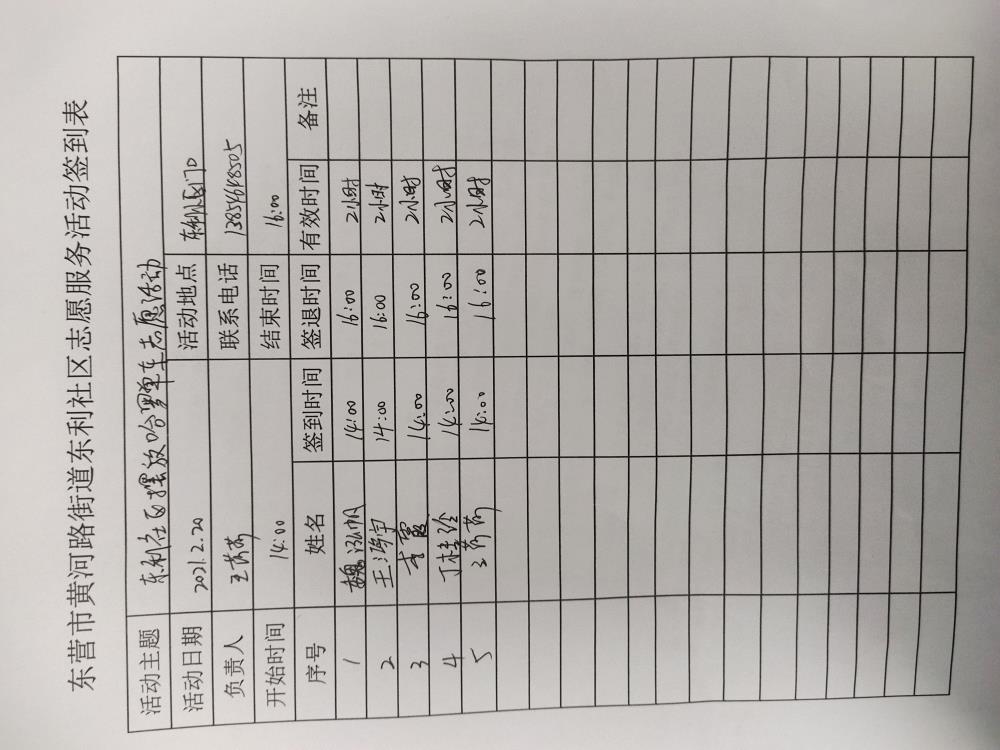 东营市黄河路街道东利社区志愿服务活动签到表
活动主题 东利社区摆放哈罗单车志愿活动
活动日期 2021.2.20 活动地点 东利社区门口
负责人 王芬芬 联系电话 13854648505
开始时间 14:00 结束时间 16:00
序号 姓名 签到时间 签退时间 有效时间 备注
1 魏泓帆 14:00 16:00 2小时
2 王鸿宇 14:00 16:00 2小时
3 14:00 16:00 2小时
4 丁桂玲 14:00 16:00 2小时
5 王芬芬 14:00 16:00 2小时